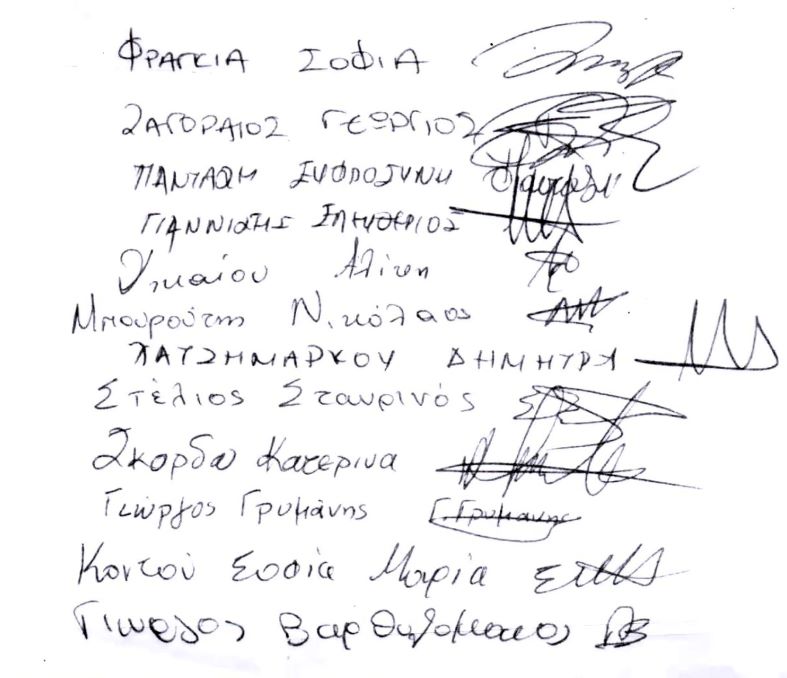 ΦΡΑΓΚΙΑ ΣΟΦΙΑ
ΖΑΓΟΡΑΙΟΣ ΓΕΩΡΓΙΟΣ
ΠΑΝΤΑΖΗ ΕΥΦΡΟΣΥΝΗ Πανταζή
ΓΙΑΝΝΙΩΤΗΣ ΕΛΕΥΘΕΡΙΟΣ
Νικαίου Αλίκη
Μπουρούτης Νικόλαος
ΧΑΤΖΗΜΑΡΚΟΥ ΔΗΜΗΤΡΑ
Στέλιος Σταυρινός
Σκορδα Κατερινα
Γιώργος Γρυμάνης Γ.Γρυμανης
Κοντού Σοφία Μαρία
Γιωργος Βαρθολομαιος ΓΒ